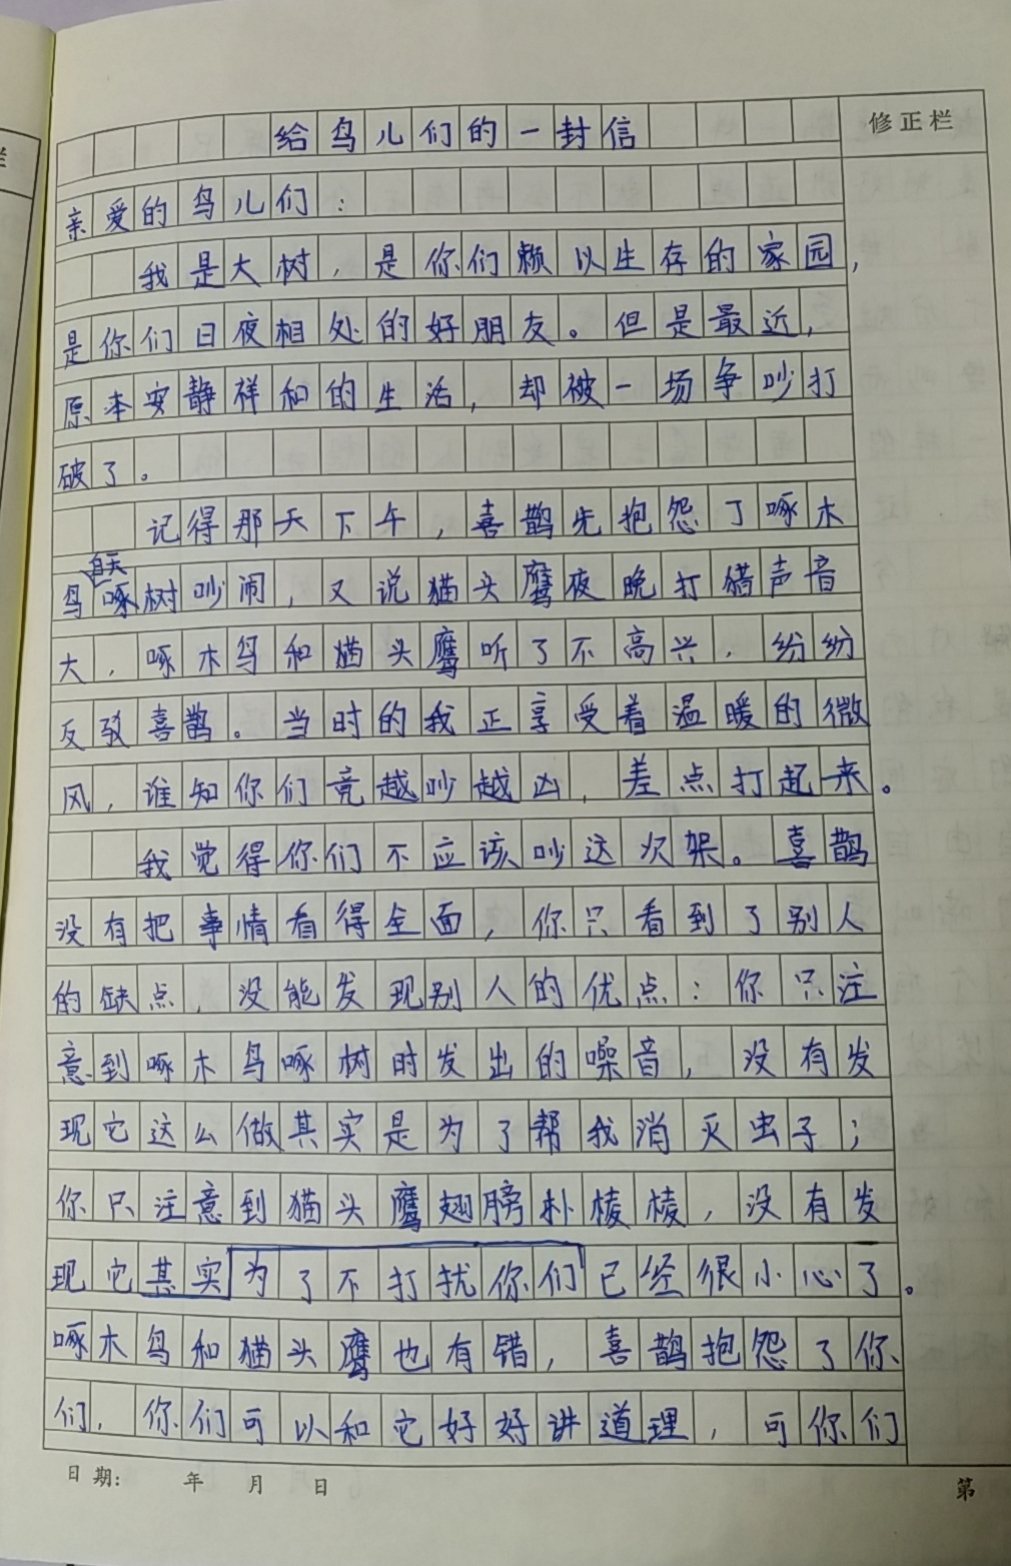 给鸟儿们的一封信
修正栏
亲爱的鸟儿们：
我是大树，是你们赖以生存的家园，
是你们日夜相处的好朋友。但是最近，
原本安静祥和的生活，却被一场争吵打
破了。
记得那天下午，喜鹊先抱怨了啄木
白天
鸟啄树吵闹，又说猫头鹰夜晚打猎声音
大，啄木鸟和猫头鹰听了不高兴，纷纷
反驳喜鹊。当时的我正享受着温暖的微
风，谁知你们竟越吵越凶，差点打起来。
我觉得你们不应该吵这次架。喜鹊
没有把事情看得全面，你只看到了别人
的缺点，没能发现别人的优点：你只注
意到啄木鸟啄树时发出的噪音，没有发
现它这么做其实是为了帮我消灭虫子；
你只注意到猫头鹰翅膀朴棱棱，没有发
现它其实为了不打扰你们已经很小心了。
啄木鸟和猫头鹰也有错，喜鹊抱怨了你
们，你们可以和它好好讲道理，可你们
日期： 年 月 日
第